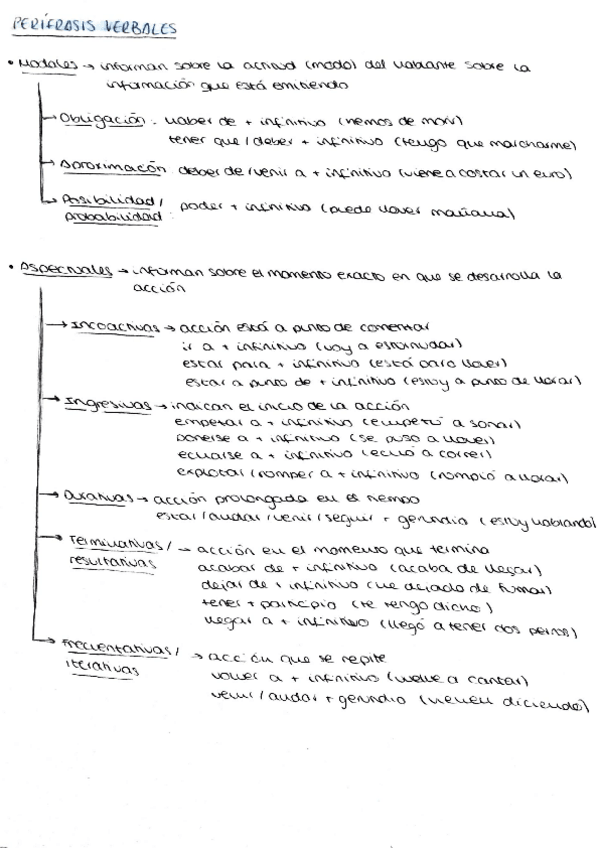 PERÍFRASIS VERBALES
• Modales → informan sobre la actitud (modo) del hablante sobre la
información que está emitiendo
→ Obligación: haber de + infinitivo (hemos de morir)
tener que / deber + infinitivo (tengo que marcharme)
→ Aproximación: deber de / venir a + infinitivo (viene a costar un euro)
→ Posibilidad / poder + infinitivo (puede llover mañana)
probabilidad:
• Aspectuales → informan sobre el momento exacto en que se desarrolla la
acción
→ Incoactivas → acción está a punto de comenzar
ir a + infinitivo (voy a estornudar)
estar para + infinitivo (está para llover)
estar a punto de + infinitivo (estoy a punto de llorar)
→ Ingresivas → indican el inicio de la acción
empezar a + infinitivo (empezó a sonar)
ponerse a + infinitivo (se puso a llover)
echarse a + infinitivo (echó a correr)
explotar / romper a + infinitivo (rompió a llorar)
→ Durativas → acción prolongada en el tiempo
estar / andar / venir / seguir + gerundio (estoy hablando)
→ Terminativas / → acción en el momento que termina
resultativas acabar de + infinitivo (acaba de llegar)
dejar de + infinitivo (he dejado de fumar)
tener + participio (te tengo dicho)
llegar a + infinitivo (llegó a tener dos perros)
→ Frecuentativas / → acción que se repite
iterativas volver a + infinitivo (vuelve a cantar)
venir / andar + gerundio (vienen diciendo)